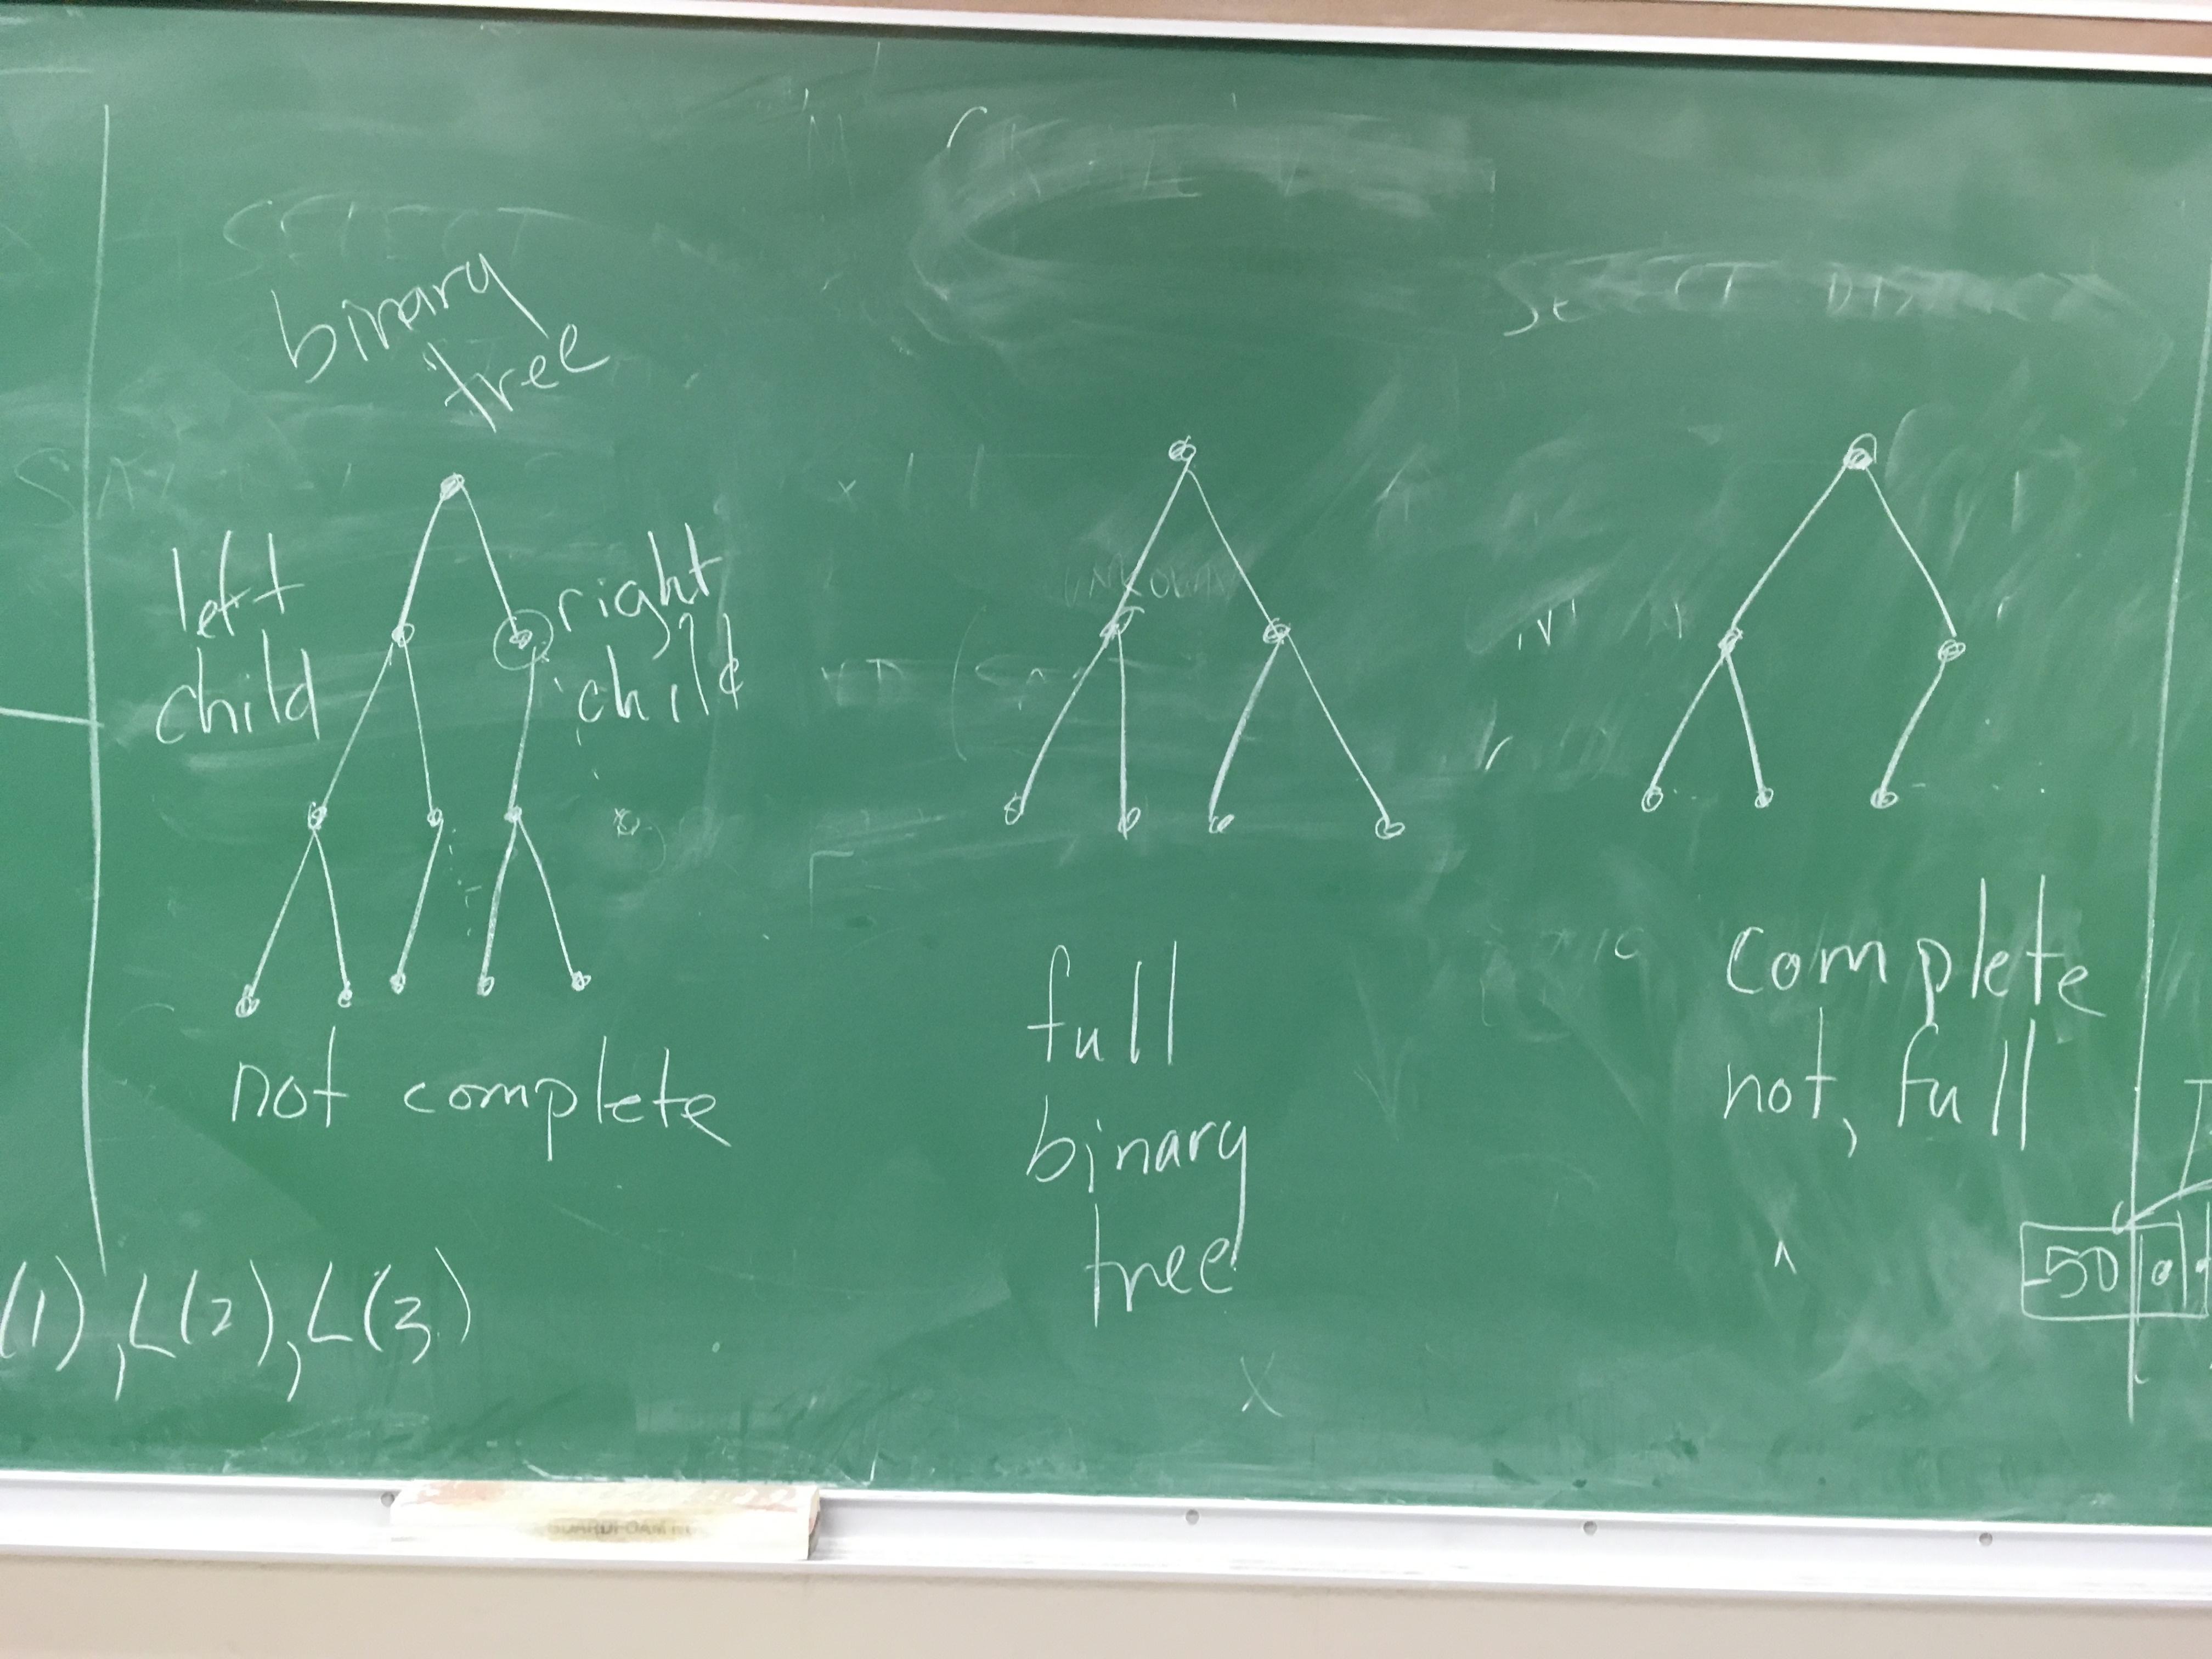 SELECT
SELECT DISTINCT
binary
tree
left
child
right
child
not complete
full
binary
tree
complete
not, full
(1), L(2), L(3)
-50
x